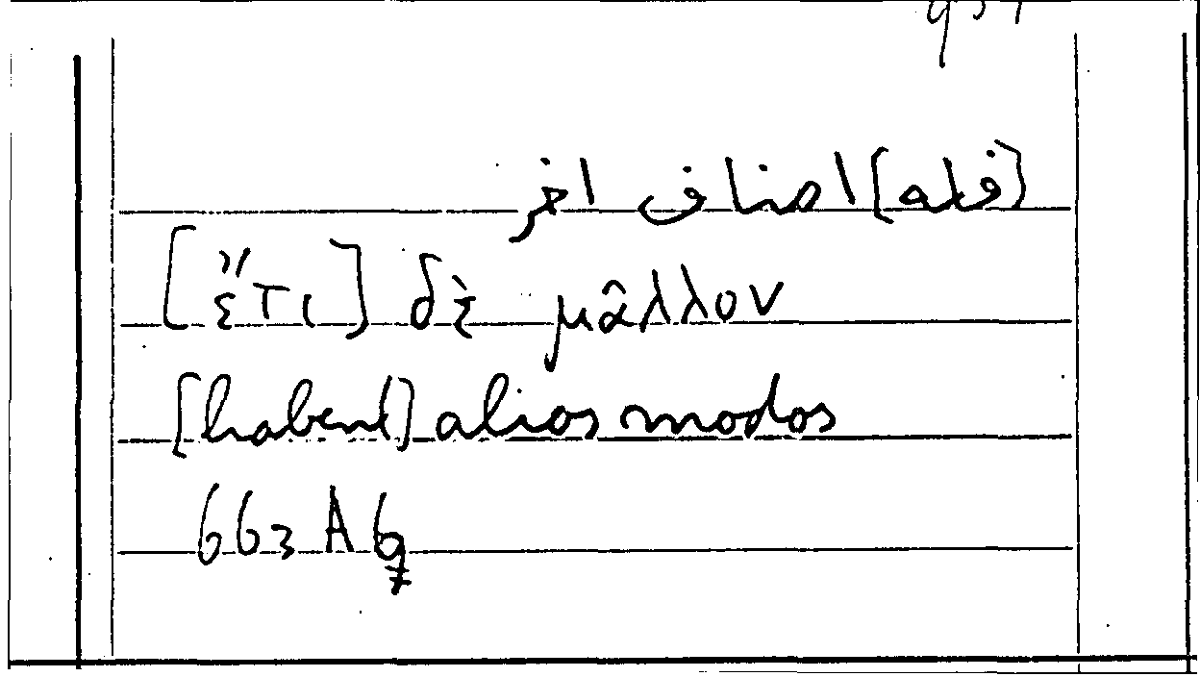 [فله] اصناف اخر
[ἔτι] δὲ μᾶλλον
[habent] alios modos
663 A 6